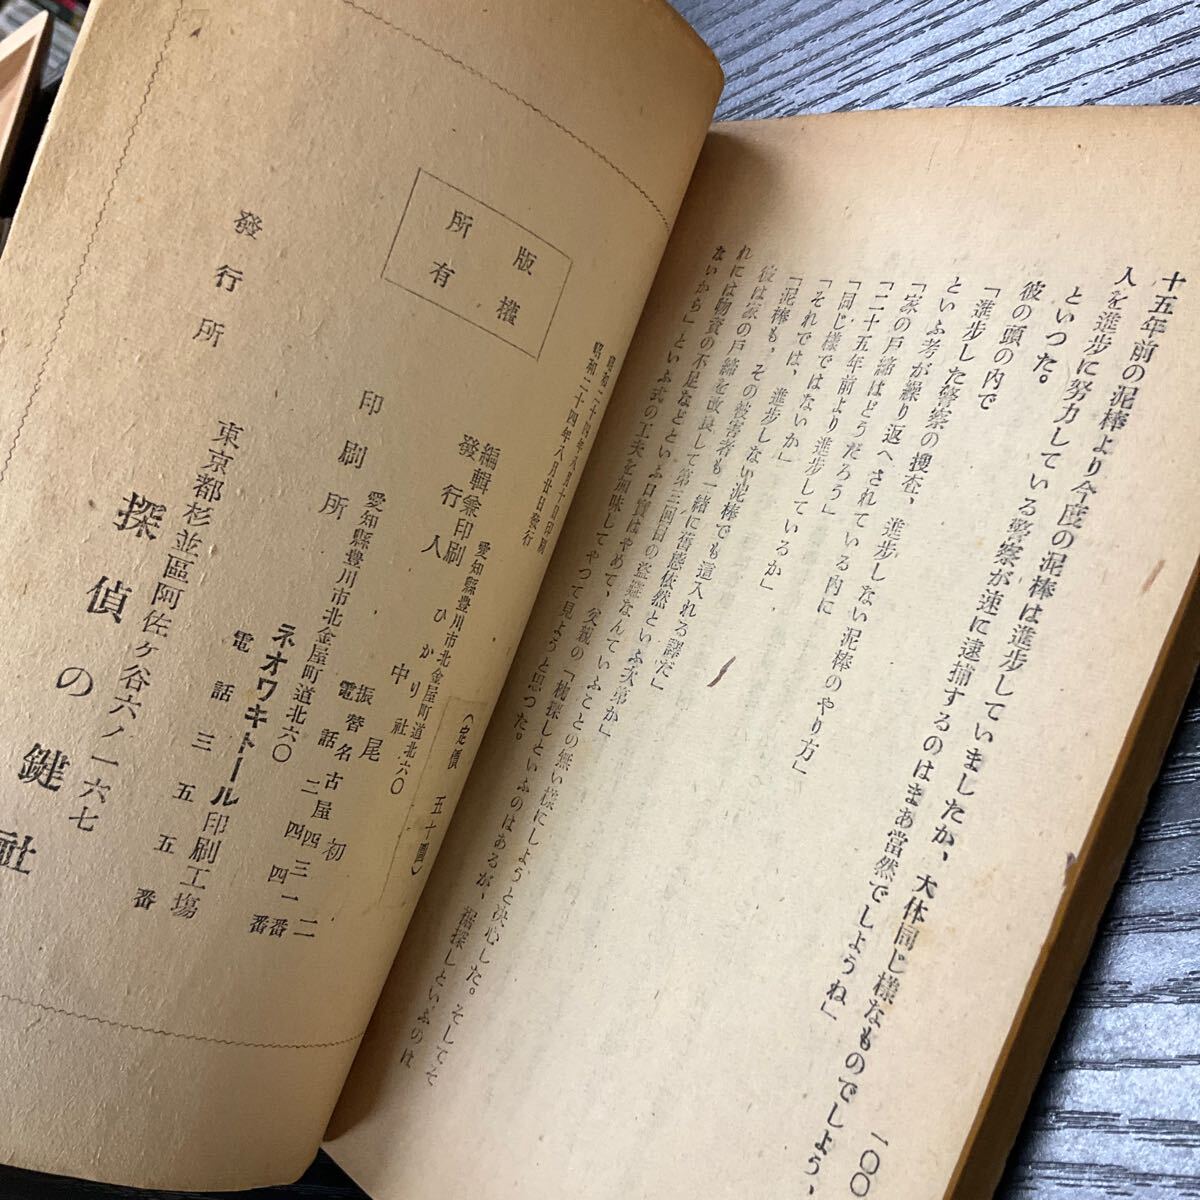 十五年前の泥棒より今度の泥棒は進歩していましたか、大体同じ様なものでしよう、
人を進歩に努力している警察が速に逮捕するのはまあ當然でしようね」
といつた。
彼の頭の内で
「進歩した警察の捜査、進歩しない泥棒のやり方」
といふ考が繰り返へされている内に
「家の戸締はどうだろう」
「二十五年前より進歩しているか」
「同じ様ではないか」
「それでは、進歩しない泥棒でも這入れる譯だ」
「泥棒も、その被害者も一緒に舊態依然といふ次第か」
彼は家の戸締を改良して第三回目の盗難なんていふことの無い様にしようと决心した。そしてそ
れには物資の不足などといふ口實はやめて、父親の「枕探しといふのはあるが、裾探しといふのは
ないから」といふ式の工夫を加味してやつて見ようと思つた。
一〇〇
昭和二十四年八月十日印刷
昭和二十四年八月廿日發行
（定價 五十圓）
版權
所有
愛知縣豊川市北金屋町道北六〇
編輯兼印刷
發行人
ひかり社
中尾初二
振替名古屋四三一二番
電話二四四一番
愛知縣豊川市北金屋町道北六〇
印刷所 ネオワキトール印刷工塲
電話三五五番
東京都杉並區阿佐ヶ谷六ノ一六七
發行所 探偵の鍵社